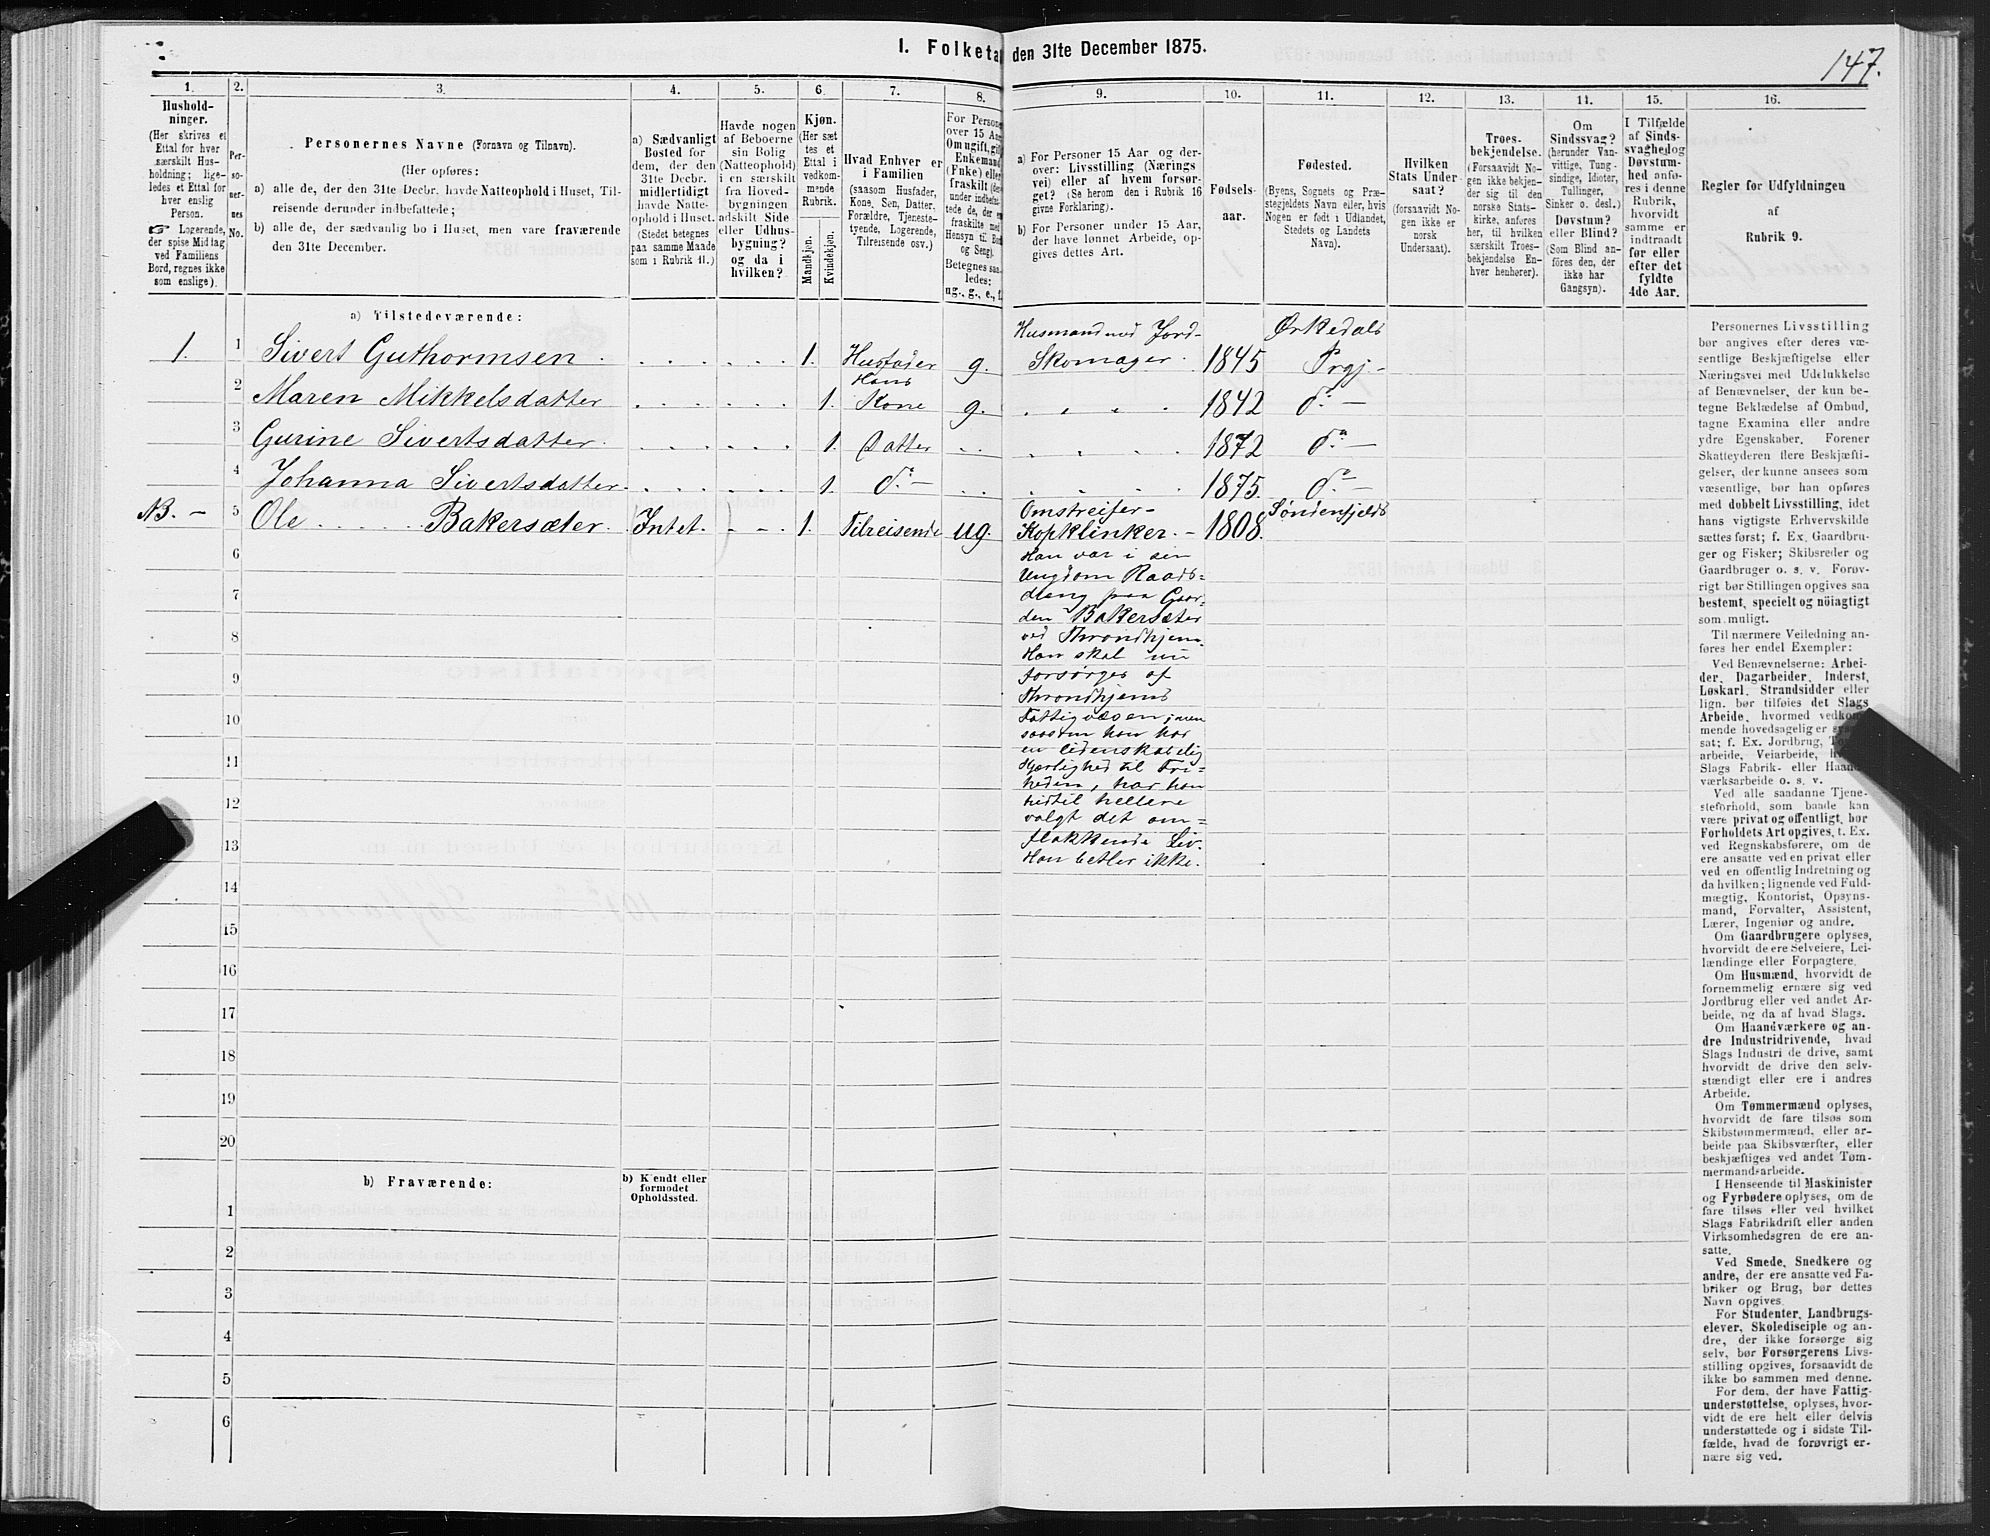 I. Folketa den 31te December 1875.
147.
1.
Hushold-
ninger.
(Her skrives et
Ettal for hver
særskilt Hus-
holdning; lige-
ledes et Ettal for
hver enslig
Person.
☞ Logerende,
der spise Middag
ved Familiens
Bord, regnes ikke
som enslige).
2.
Per-
so-
ner-
nes
No.
3.
Personernes Navne (Fornavn og Tilnavn).
(Her opføres:
a) alle de, der den 31te Decbr. havde Natteophold i Huset, Til-
reisende derunder indbefattede;
b) alle de, der sædvanlig bo i Huset, men vare fraværende
den 31te December.
4.
a) Sædvanligt
Bosted for
dem, der den
31te Decbr.
midlertidigt
havde Natte-
ophold i Huset.
(Stedet betegnes
paa samme Maade
som i Rubrik 11.)
5.
Havde nogen
af Beboerne
sin Bolig
(Natteophold)
i en særskilt
fra Hoved-
bygningen
adskilt Side
eller Udhus-
bygning?
og da i
hvilken?
6.
Kjøn.
(Her sæt
tes et
Ettal i
vedkom-
mende
Rubrik.
Mandkjøn.
Kvindekjøn.
7.
Hvad Enhver er
i Familien
(saasom Husfader,
Kone, Søn, Datter,
Forældre, Tjeneste-
tyende, Logerende,
Tilreisende osv.)
8.
For Persone
over 15 Aar
Om ugift, gift
Enkemand
(Enke) eller
fraskilt (der
under indbefat-
tede de, der er
fraskilte med
Hensyn til Bord
og Seng).
Betegnes saa-
ledes:
ug., g., e., f.
9.
a) For Personer 15 Aar og der-
over: Livsstilling (Nærings
vei) eller af hvem forsør-
get? (Se herom den i Rubrik 16
givne Forklaring).
b) For Personer under 15 Aar,
der have lønnet Arbeide, op-
gives dettes Art.
10.
Fødsels-
aar.
11.
Fødested.
(Byens, Sognets og Præ-
stegjeldets Navn eller, hvis
Nogen er født i Udlandet,
Stedets og Landets
Navn).
12.
Hvilken
Stats Under-
saat?
(forsaavidt No-
gen ikke er
norsk
Undersaat).
13.
Troes-
bekjendelse.
(Forsaavidt No-
gen ikke bekjen-
der sig til den
norske Stats-
kirke, anføres
her, til hvilken
særskilt Troes-
bekjendelse En-
hver henhører).
14.
Om
Sindssvag?
(herunder Van-
vittige, Tung-
sindige, Idioter,
Tullinger,
Sinker o. desl.)
Døvstum?
eller Blind?
(Som Blind an-
føres den, der
ikke har
Gangsyn).
15.
I Tilfælde
af Sinds-
svaghed og
Døvstum-
hed anfø-
res i denne
Rubrik,
hvorvidt
samme er
indtraadt
før eller
efter det
fyldte
4de Aar.
16.
Regler for Udfyldningen
af
Rubrik 9.
a) Tilstedeværende:
1. 1 Sivert Guthormsen 1. Husfader g. Husmand med Jord- Skomager. 1845 Ørkedals Prgj -
2 Maren Mikkelsdatter 1. Hans Kone g. 1842 do -
3 Gurine Sivertsdatter. 1. Datter 1872 do -
4 Johanna Sivertsdatter. 1. do - 1875 do -
NB. - 5 Ole Bakersæter. Intet. 1. Tilreisende ug. Omstreifer- Kopklinker. - 1808. Søndenfjelds
Han var i sin
Ungdom Raads-
dreng paa Gaar-
den Bakersæter
ved Throndhjem
Han skal nu
forsørges af
Throndhjems
Fattigvæsen; men
saasom han har
en lidenskabelig
Kjærlighed til Fri-
heden, har han
hidtil hellere
valgt det om-
flakkende Liv.
Han betler ikke.
6
7
8
9
10
11
12
13
14
15
16
17
18
19
20
b) Fraværende:
b) Kjendt eller
formodet
Opholdssted.
1
2
3
4
5
6
Personernes Livsstilling
bør angives efter deres væ-
sentlige Beskjæftigelse eller
Næringsvei med Udelukkelse
af Benævnelser, der kun be-
tegne Beklædelse af Ombud,
tagne Examina eller andre
ydre Egenskaber. Forener
Skatteyderen flere Beskjæfti-
gelser, der kunne ansees som
væsentlige, bør han opføres
med dobbelt Livsstilling, idet
hans vigtigste Erhvervskilde
sættes først; f. Ex. Gaardbru-
ger og Fisker; Skibsreder og
Gaardbruger o. s. v. Forøv-
rigt bør Stillingen opgives saa
bestemt, specielt og nöiagtigt
som muligt.
Til nærmere Veiledning an-
føres her endel Exempler:
Ved Benævnelserne: Arbei-
der, Dagarbeider, Inderst,
Løskarl, Strandsidder eller
lign. bør tilføies det Slags
Arbeide, hvormed vedkom-
mende hovedsagelig er
sat; f. Ex. Jordbrug,
arbeide, Veiarbeide,
Slags Fabrik- eller Haand-
værksarbeide o. s. v.
Ved alle saadanne Tjene-
steforhold, som baade kan
være privat og offentligt, bør
Forholdets Art opgives, t. Ex.
ved Regnskabsførere, om de
ere ansatte ved en privat eller
ved en offentlig Indretning og
da hvilken; lignende ved Fuld-
mægtig, Kontorist, Opsyns-
mand, Forvalter, Assistent,
Lærer, Ingeniør og andre.
Om Gaardbrugere oplyses,
hvorvidt de ere Selveiere, Lei-
lændinge eller Forpagtere.
Om Husmænd, hvorvidt de
fornemmelig ernære sig ved
Jordbrug eller ved andet Ar-
beide, og da af hvad Slags.
Om Haandværkere og an-
dre Industridrivende, hvad
Slags Industri de drive, samt
hvorvidt de drive den selv-
stændigt eller ere i andres
Arbeide.
Om Tømmermænd oplyses,
hvorvidt de fare tilsøs som
Skibstømmermænd, eller ar-
beide paa Skibsværfter, eller
beskjæftiges ved andet Tøm-
mermandsarbeide.
I Henseende til Maskinister
og Fyrbødere oplyses, om de
fare tilsøs eller ved hvilket
Slags Fabrikdrift eller anden
Virksomhedsgren de ere an-
satte.
Ved Smede, Snedkere og
andre, der ere ansatte ved Fa-
briker og Brug, bør dettes
Navn opgives.
For Studenter, Landbrugs-
elever, Skoledisciple og an-
dre, der ikke forsørge sig
selv, bør Forsørgerens Livs-
stilling opgives, forsaavidt de
ikke bo sammen med denne.
For dem, der have Fattig-
understøttelse, oplyses, hvor-
vidt de ere helt eller delvis
understøttede og i sidste Til-
fælde, hvad de forøvrigt er-
nære sig ved.